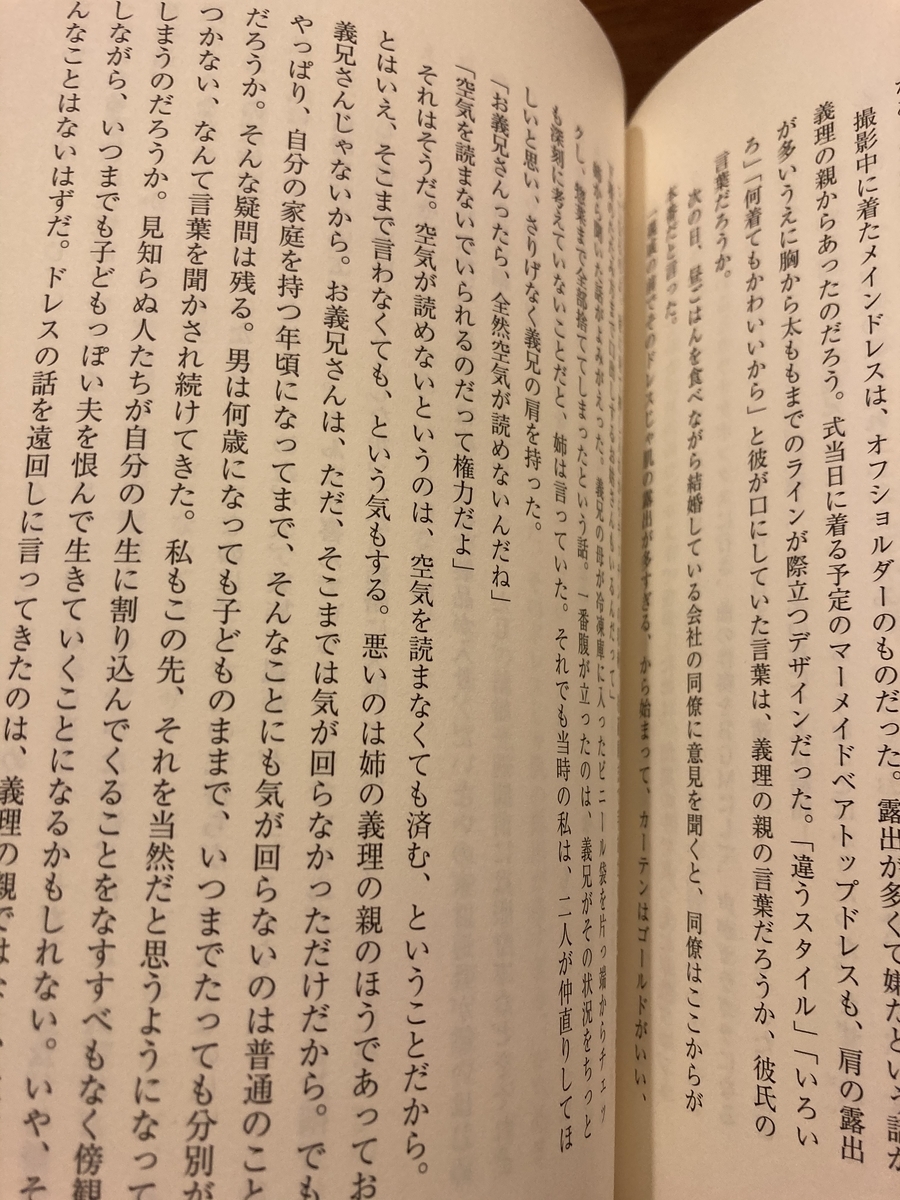 撮影中に着たメインドレスは、オフショルダーのものだった。露出が多くて嫌だという話が
義理の親からあったのだろう。式当日に着る予定のマーメイドベアトップドレスも、肩の露出
が多いうえに胸から太ももまでのラインが際立つデザインだった。「違うスタイル」「いろい
ろ」「何着てもかわいいから」と彼が口にしていた言葉は、義理の親の言葉だろうか、彼氏の
言葉だろうか。
次の日、昼ごはんを食べながら結婚している会社の同僚に意見を聞くと、同僚はここからが
本番だと言った。
「親戚の前でそのドレスじゃ肌の露出が多すぎる、から始まって、カーテンはゴールドがいい、
姉から聞いた話がよみがえった。義兄の母が冷凍庫に入ったビニール袋を片っ端からチェッ
クし、惣菜まで全部捨ててしまったという話。一番腹が立ったのは、義兄がその状況をちっと
も深刻に考えていないことだと、姉は言っていた。それでも当時の私は、二人が仲直りしてほ
しいと思い、さりげなく義兄の肩を持った。
「お義兄さんったら、全然空気が読めないんだね」
「空気を読まないでいられるのだって権力だよ」
それはそうだ。空気が読めないというのは、空気を読まなくても済む、ということだから。
とはいえ、そこまで言わなくても、という気もする。悪いのは姉の義理の親のほうであってお
義兄さんじゃないから。お義兄さんは、ただ、そこまでは気が回らなかっただけだから。でも
やっぱり、自分の家庭を持つ年頃になってまで、そんなことにも気が回らないのは普通のこと
だろうか。そんな疑問は残る。男は何歳になっても子どものままで、いつまでたっても分別が
つかない、なんて言葉を聞かされ続けてきた。私もこの先、それを当然だと思うようになって
しまうのだろうか。見知らぬ人たちが自分の人生に割り込んでくることをなすすべもなく傍観
しながら、いつまでも子どもっぽい夫を恨んで生きていくことになるかもしれない。いや、そ
んなことはないはずだ。ドレスの話を遠回しに言ってきたのは、義理の親では